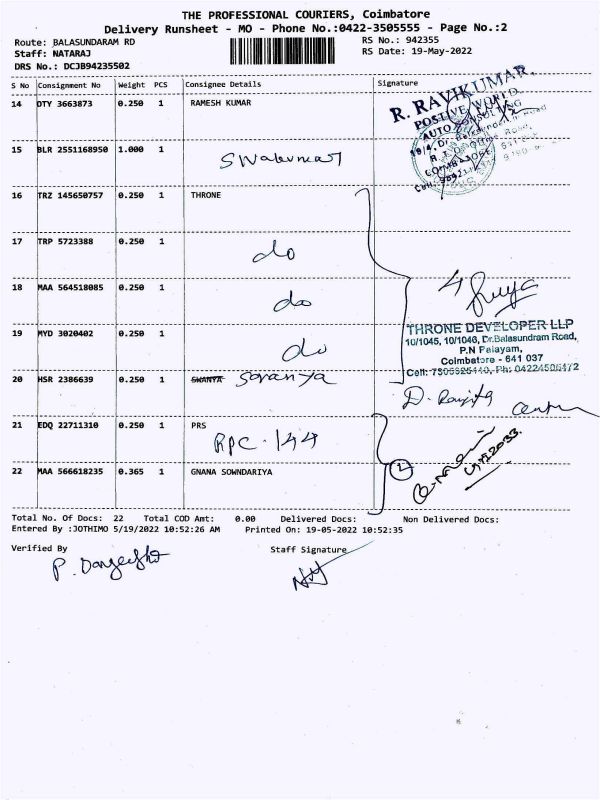 THE PROFESSIONAL COURIERS, Coimbatore
Delivery Runsheet - MO - Phone No.:0422-3505555 - Page No.:2
Route: BALASUNDARAM RD
RS No.: 942355
Staff: NATARAJ
RS Date: 19-May-2022
DRS No.: DCJB94235502
S No Consignment No Weight PCS Consignee Details Signature
14 DTY 3663873 0.250 1 RAMESH KUMAR
R. RAVIKUMAR,
POSTIVE WORLD
AUTO CONSULTING
15 BLR 2551168950 1.000 1
16 TRZ 145650757 0.250 1 THRONE
17 TRP 5723388 0.250 1 do
18 MAA 564518085 0.250 1 do
THRONE DEVELOPER LLP
10/1045, 10/1046, Dr.Balasundram Road,
P.N Palayam,
Coimbatore - 641 037
19 MYD 3020402 0.250 1 do
20 HSR 2386639 0.250 1 SWANYA Saranya
21 EDQ 22711310 0.250 1 PRS
RPC - 144
22 MAA 566618235 0.365 1 GNANA SOWNDARIYA
2
Total No. Of Docs: 22 Total COD Amt: 0.00 Delivered Docs: Non Delivered Docs:
Entered By :JOTHIMO 5/19/2022 10:52:26 AM Printed On: 19-05-2022 10:52:35
Verified By Staff Signature